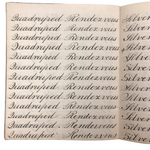 Quadruped Rendezvous Silver
Quadruped Rendezvous Silver
Quadruped Rendezvous Silver
Quadruped Rendezvous Silver
Quadruped Rendezvous Silver
Quadruped Rendezvous Silver
Quadruped Rendezvous Silver
Quadruped Rendezvous Silver
Quadruped Rendezvous Silver
Quadruped Rendezvous Silver
Quadruped Rendezvous Silver
Quadruped Rendezvous Silver